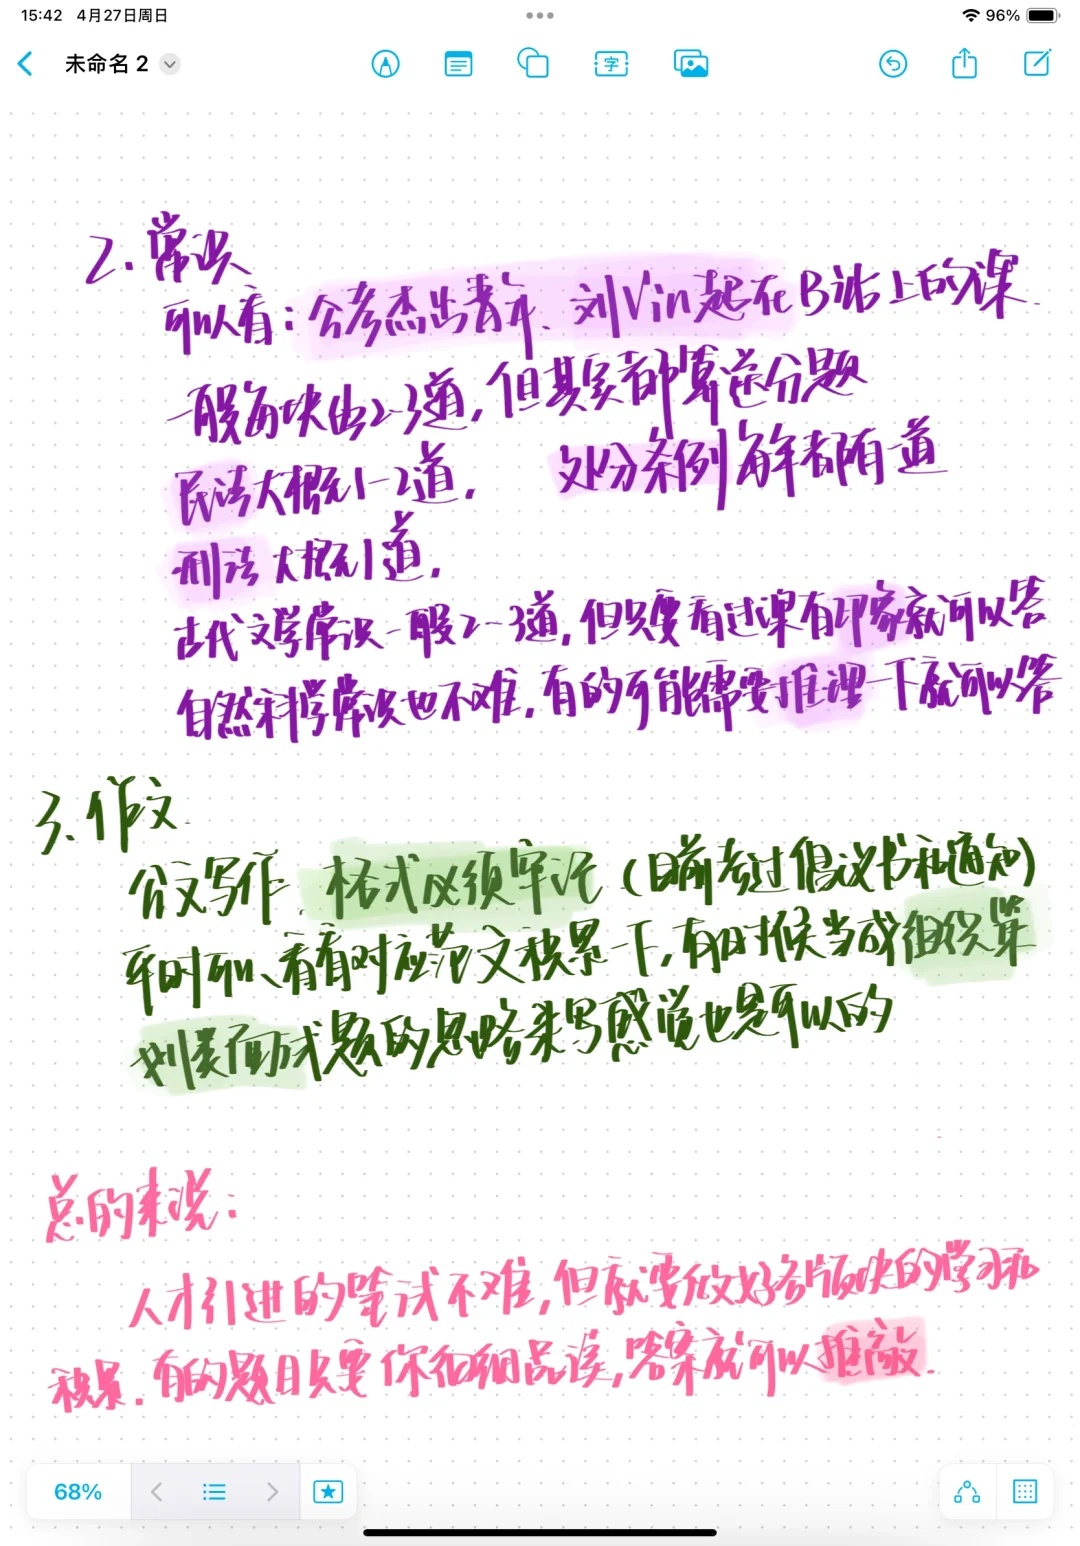 15:42 4月27日周日
96%
未命名 2
字
2.常识
可以看：公考杰出青年、刘Vin起在B站上的课.
一般每块出2-3道,但其实都算送分题
民法大概1-2道. 处分条例每年都有一道
刑法大概1道.
古代文学常识一般2-3道,但只要看过课有印象就可以答
自然科学常识也不难,有的可能需要推理一下就可以答
3.作文.
公文写作.格式必须牢记(目前考过倡议书和通知)
平时可以看看对应范文积累一下,有时候当成组织策
划类面试题的思路来写感觉也是可以的
总的来说：
人才引进的笔试不难,但就要做好各版块的学习和
积累.有的题目只要你仔细品读,答案就可以推敲.
68%